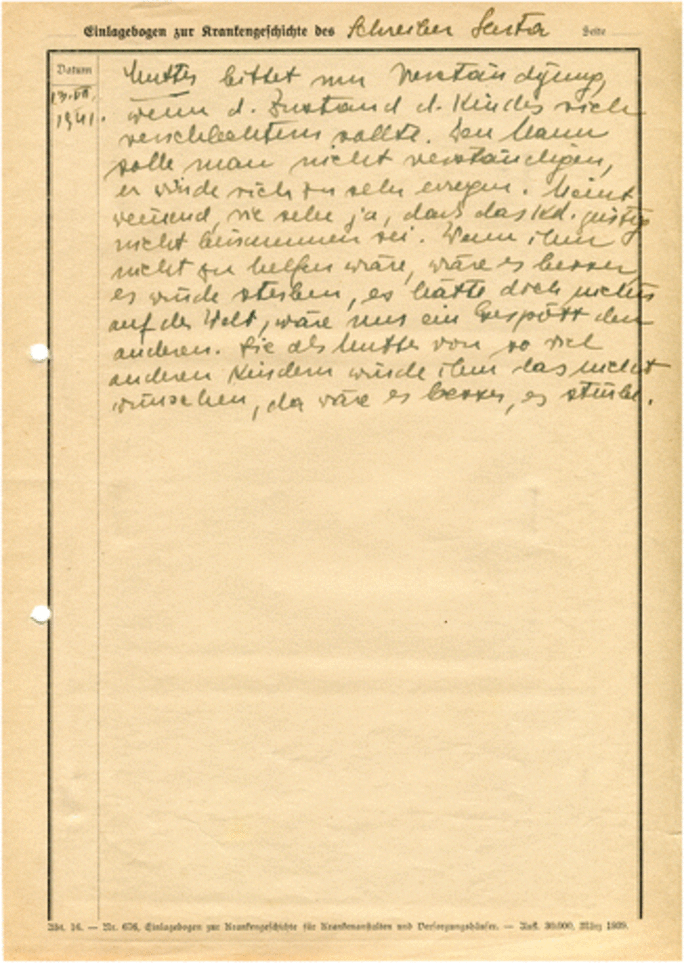 Einlagebogen zur Krankengeschichte des Schreiber Herta Seite
Datum
13.VII.
1941.
Mutter bittet um Verständigung,
wenn d. Zustand d. Kindes sich
verschlechtern sollte. Den Mann
solle man nicht verständigen,
er würde sich zu sehr erregen. Meint
weinend, sie sehe ja, dass das Kd. geistig
nicht beisammen sei. Wenn ihm
nicht zu helfen wäre, wäre es besser
es würde sterben, es hätte doch nichts
auf der Welt, wäre nur ein Gespött den
anderen. Sie als Mutter von so viel
anderen Kindern würde ihm das nicht
wünschen, da wäre es besser, es stürbe.
Abt. 16. — Nr. 676, Einlagebogen zur Krankengeschichte für Krankenanstalten und Versorgungshäuser. — Aufl. 30.000, März 1939.